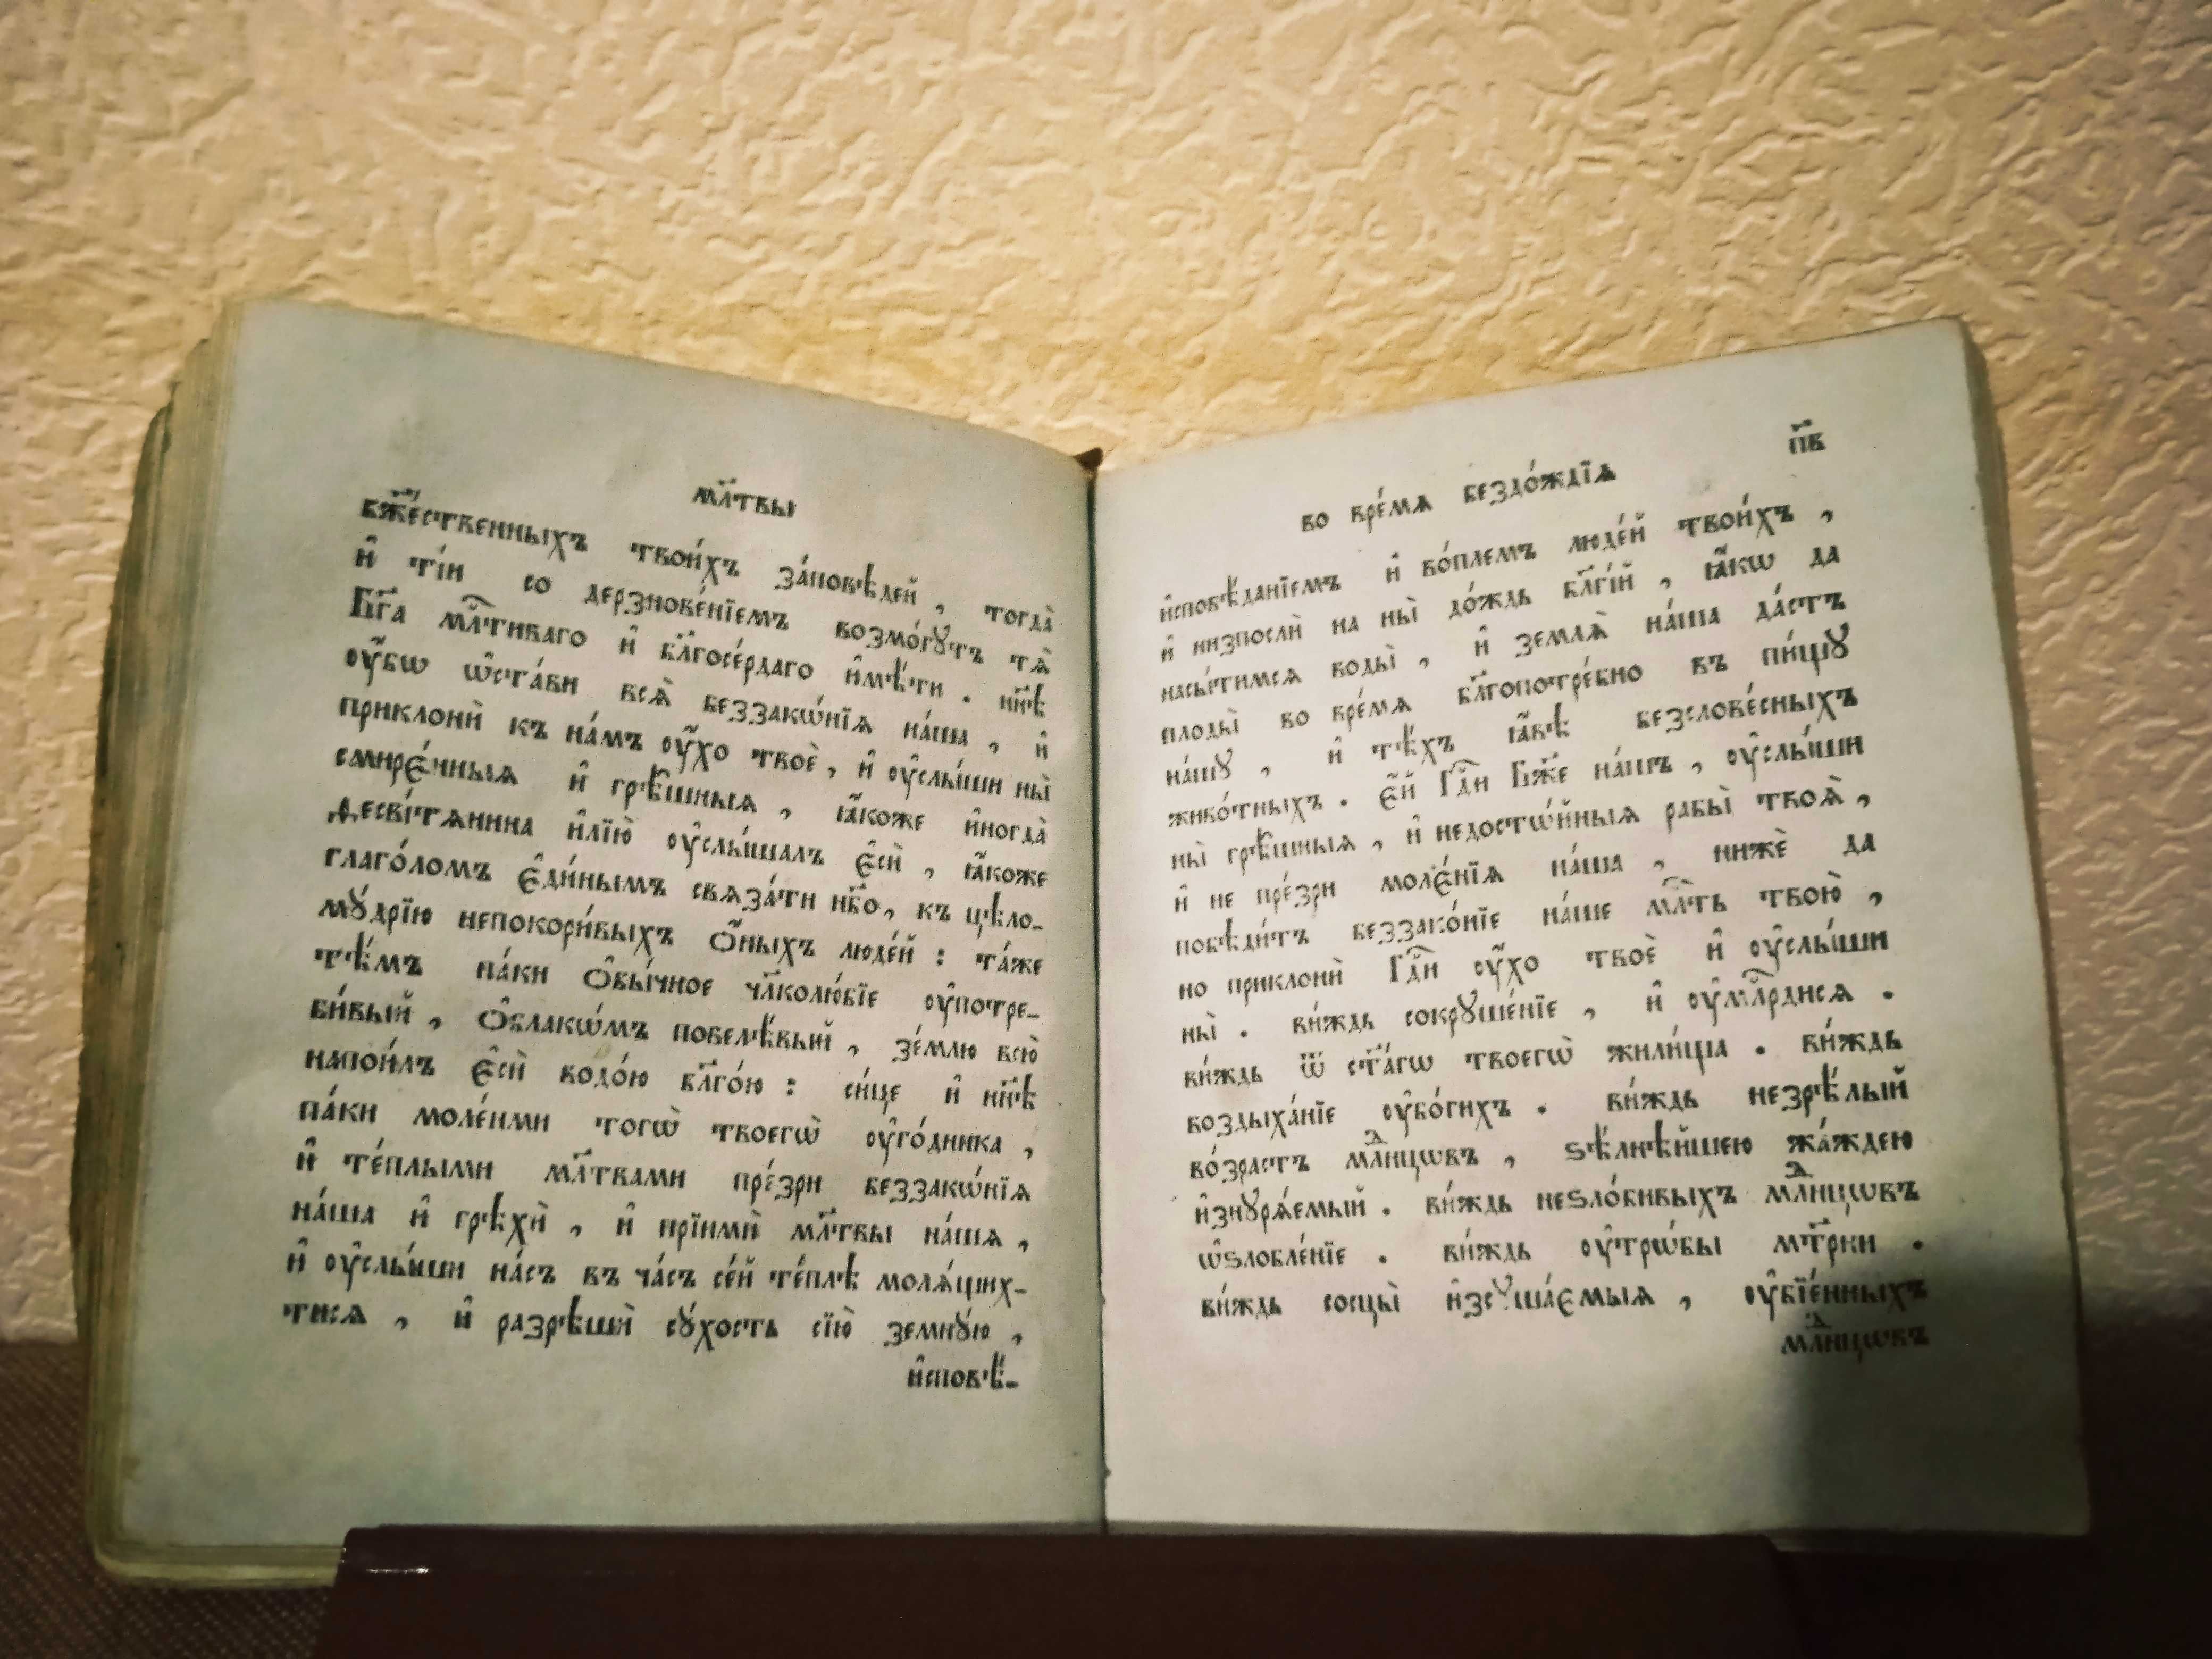 мл҃твы
бж҃е́ственныхъ твои́хъ за́повѣдей, тогда̀
и҆ ті́и со дерзнове́нїемъ возмо́гꙋтъ тѧ̀
Бг҃а мл҃тиваго и҆ бл҃госе́рдаго и҆мѣ́ти. нн҃ѣ
ᲂу҆́бѡ ѡ҆ста́ви всѧ̑ беззакѡ́нїѧ на́ша, и҆
приклонѝ къ на́мъ ᲂу҆́хо твоѐ, и҆ ᲂу҆слы́ши ны̀
смире́нныѧ и҆ грѣ́шныѧ, ꙗ҆́коже и҆ногда̀
Ѳесві́тѧнина и҆лїю̀ ᲂу҆слы́шалъ є҆сѝ, ꙗ҆́коже
глаго́ломъ є҆ди́нымъ свѧза́ти нб҃о, къ цѣло-
мꙋ́дрїю непокори́выхъ ѻ҆́ныхъ люде́й: та́же
тѣ́мъ па́ки ѻ҆бы́чное чл҃колю́бїе ᲂу҆потре-
би́вый, ѻ҆блакѡ́мъ повелѣ́вый, зе́млю всю̀
напои́лъ є҆сѝ водо́ю бл҃го́ю: си́це и҆ нн҃ѣ
па́ки моле́ньми тогѡ̀ твоегѡ̀ ᲂу҆го́дника,
и҆ те́плыми мл҃твами пре́зри беззакѡ́нїѧ
на́ша и҆ грѣхѝ, и҆ прїимѝ мл҃твы на́шѧ,
и҆ ᲂу҆слы́ши на́съ въ ча́съ се́й те́плѣ молѧ́щих-
тисѧ, и҆ разрѣшѝ сꙋ́хость сїю̀ земнꙋ́ю,
и҆сповѣ́-
во вре́мѧ бездо́ждїѧ
п҃в
и҆сповѣ́данїемъ и҆ во́племъ люде́й твои́хъ,
и҆ низпослѝ на ны̀ до́ждь бл҃гі́й, ꙗ҆́кѡ да
насы́тимсѧ воды̀, и҆ землѧ̀ на́ша да́стъ
плоды̀ во вре́мѧ бл҃гопотре́бно въ пи́щꙋ
на́шꙋ, и҆ тѣ́хъ ꙗ҆́вѣ безслове́сныхъ
живо́тныхъ. є҆́й Гд҃и Бж҃е на́шъ, ᲂу҆слы́ши
ны̀ грѣ́шныѧ, и҆ недостѡ́йныѧ рабы̀ твоѧ̀,
и҆ не пре́зри моле́нїѧ на́ша, нижѐ да
побѣди́тъ беззако́нїе на́ше мл҃ть твою̀,
но приклонѝ Гд҃и ᲂу҆́хо твоѐ и҆ ᲂу҆слы́ши
ны̀. ви́ждь сокрꙋше́нїе, и҆ ᲂу҆мл҃рдисѧ.
ви́ждь ѿ ст҃а́гѡ твоегѡ̀ жили́ща. ви́ждь
воздыха́нїе ᲂу҆бо́гихъ. ви́ждь незрѣ́лый
во́зрастъ млⷣнцѡвъ, ѕѣ́лнѣйшею жа́ждею
и҆знꙋрѧ́емый. ви́ждь неѕло́бивыхъ млⷣнцѡвъ
ѡ҆ѕлобле́нїе. ви́ждь ᲂу҆трѡ́бы мт҃рни.
ви́ждь сосцы̀ и҆зсꙋша́емыѧ, ᲂу҆бїе́нныхъ
млⷣнцѡвъ